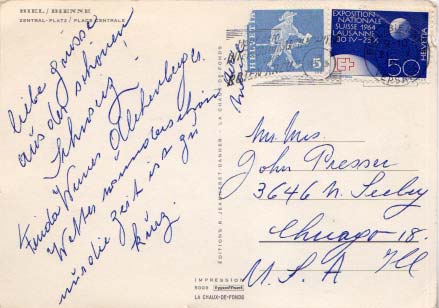 BIEL / BIENNE
ZENTRAL-PLATZ / PLACE CENTRALE
liebe grüsse
aus der schönen
Schweiz.
Wetter wunderschön
nur die Zeit ist zu
kurz.
EDITIONS R. JEANNERET-DANNER - LA CHAUX-DE-FONDS
IMPRESSION
5009 Typoffset
LA CHAUX-DE-FONDS
HELVETIA
5
EXPOSITION
NATIONALE
SUISSE 1964
LAUSANNE
30 IV-25 X
HELVETIA
50
Mr. Mrs.
John Presser
3646 N. Seeley
Chicago 18.
U.S.A Ill